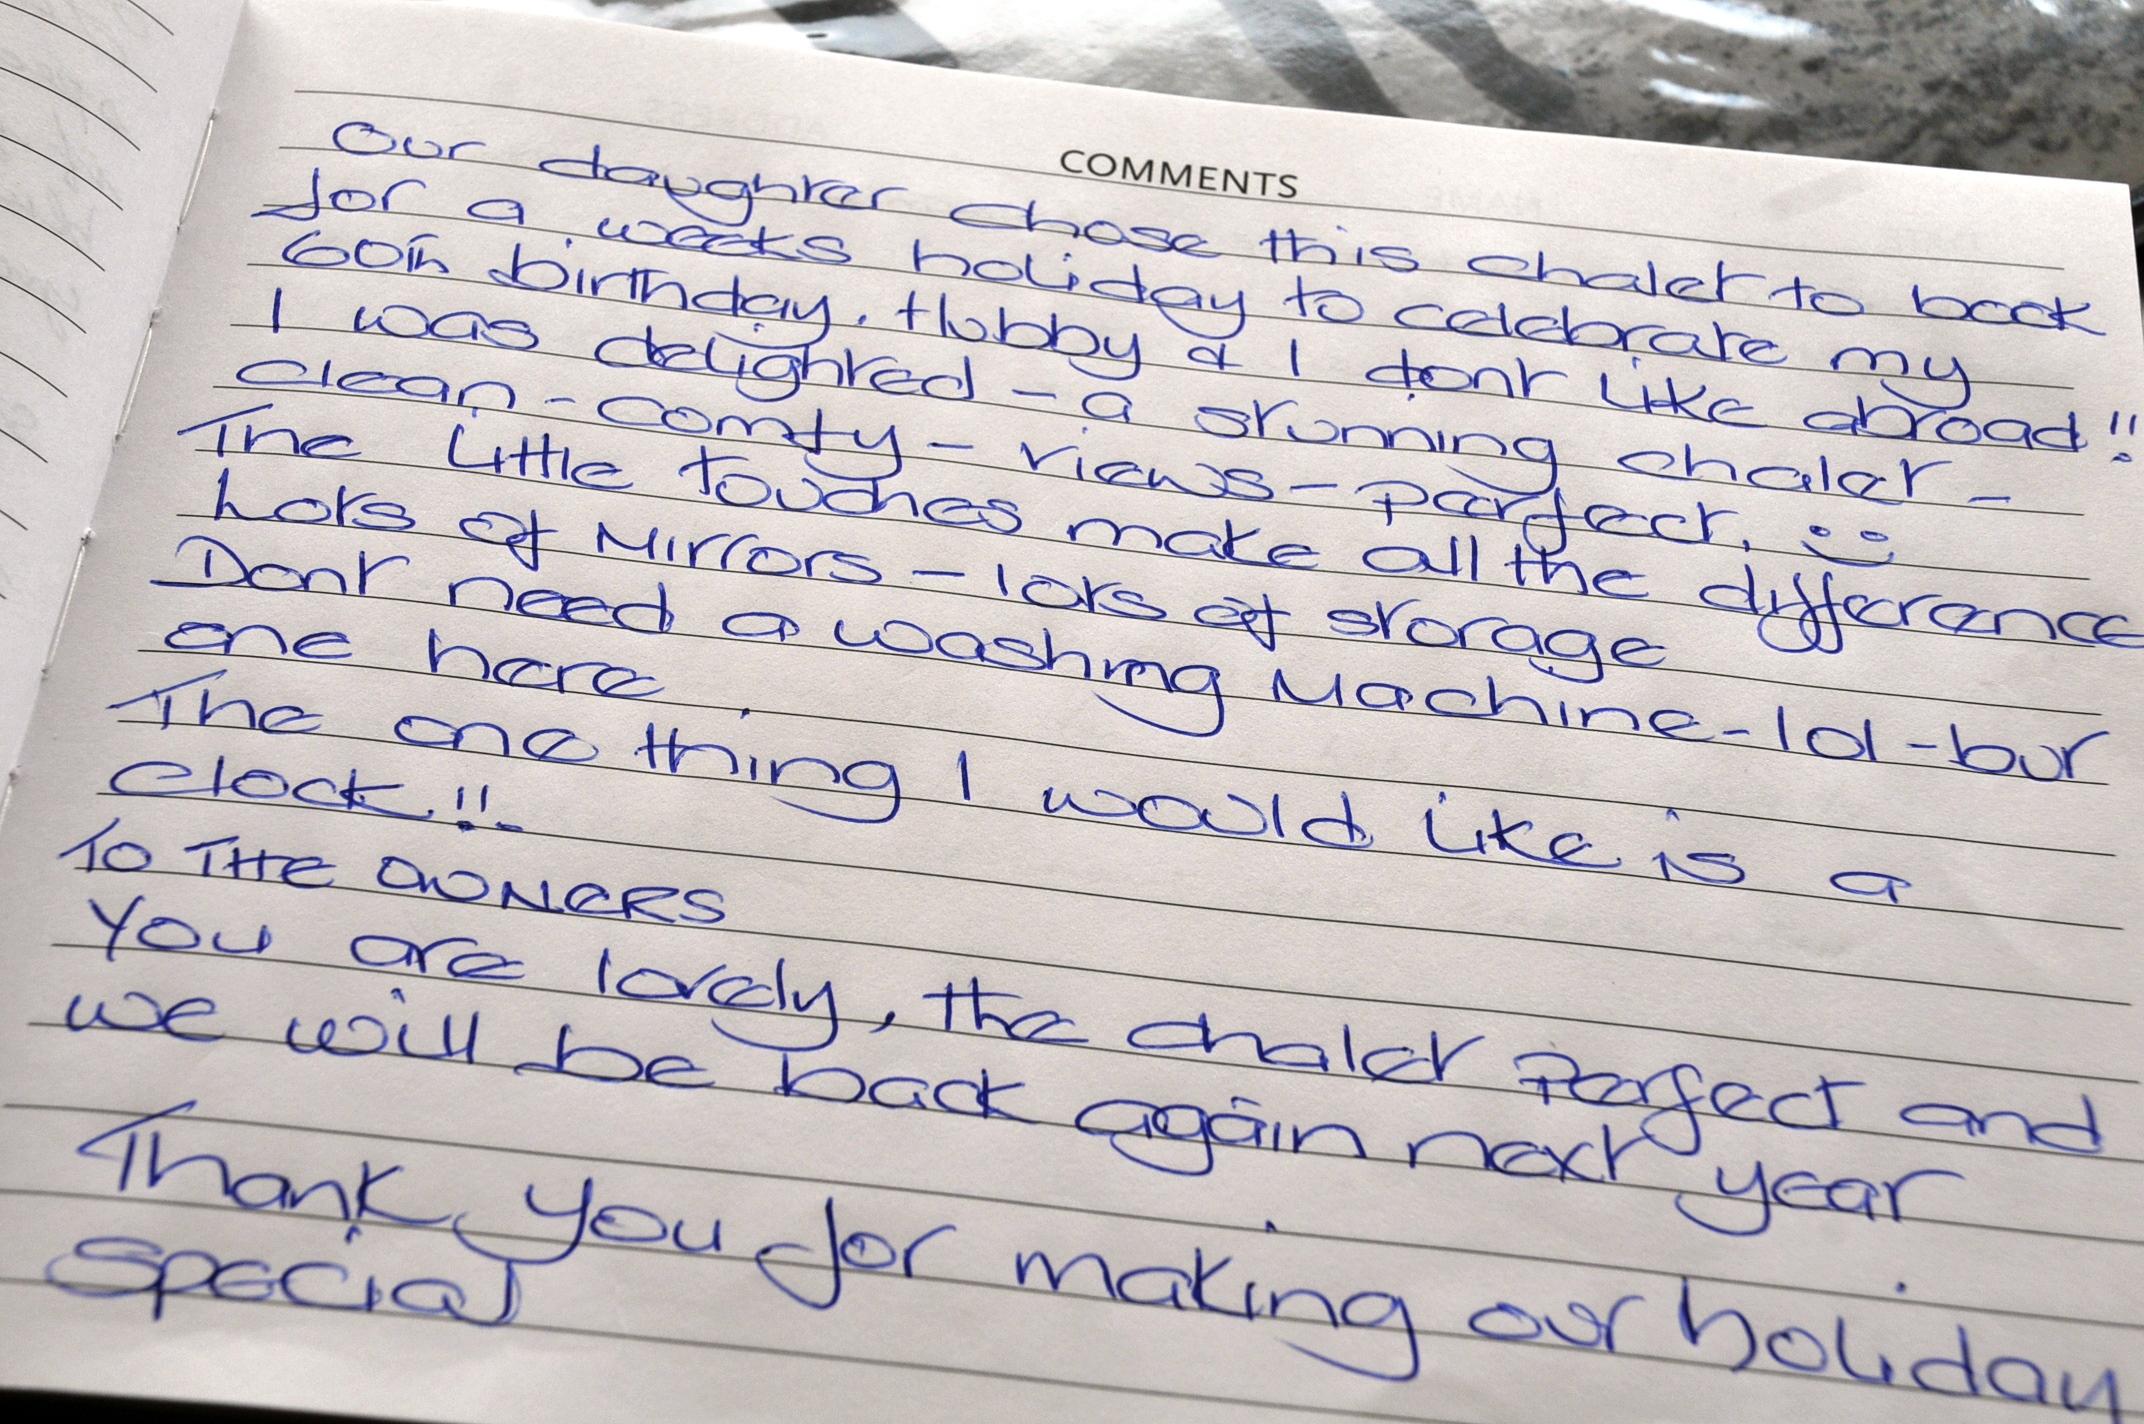 COMMENTS
Our daughter chose this chalet to book
for a weeks holiday to celebrate my
60th birthday. Hubby & I dont like abroad!!
I was delighted - a stunning chalet -
clean - comfy - views - perfect. :)
The little touches make all the difference
Lots of Mirrors - lots of storage
Dont need a washing Machine - lol - but
one here.
The one thing I would like is a
clock!!
TO THE OWNERS
You are lovely, the chalet Perfect and
we will be back again next year
Thank you for making our holiday
special